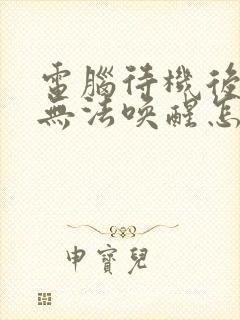 電腦待機後
無法喚醒怎
申寶兒